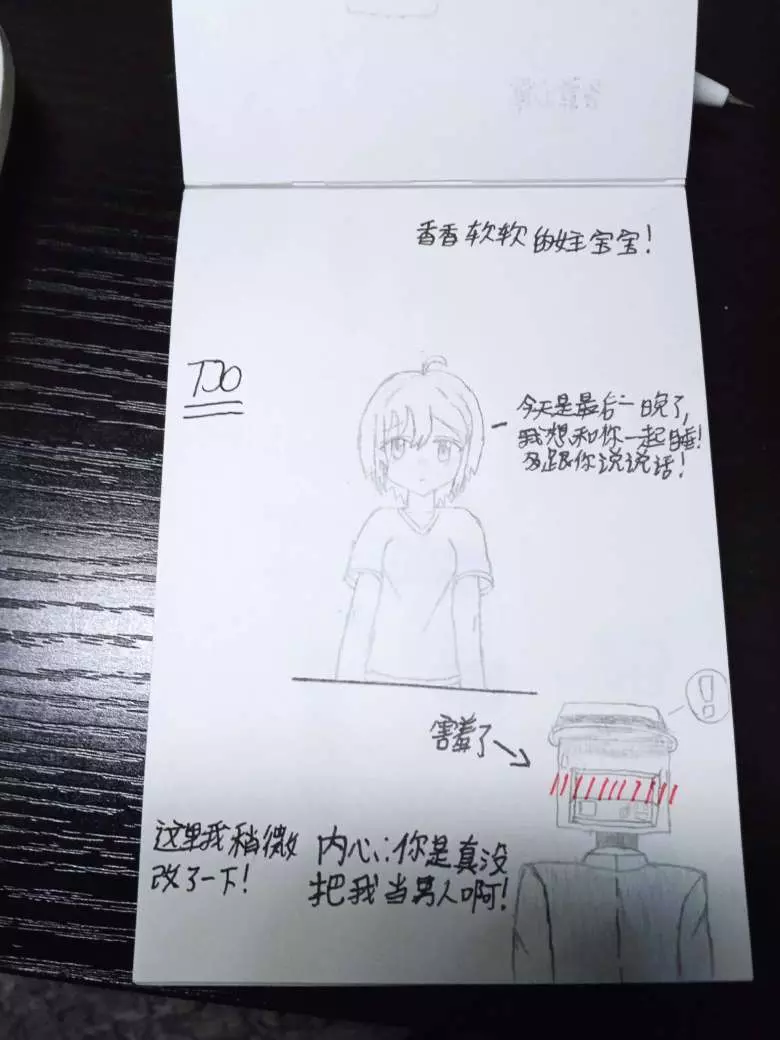 香香软软的女主宝宝！
今天是最后一晚了，
我想和你一起睡！
多跟你说说话！
！
害羞了
这里我稍微
改了一下！
内心：你是真没
把我当男人啊！